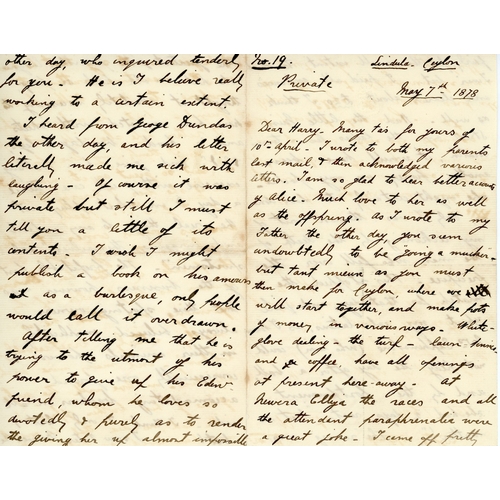 No. 19. Lindula - Ceylon
Private
May 7th 1878
Dear Harry - Many tas for yours of
10th April. I wrote to both my parents
last mail, & then acknowledged various
letters. I am so glad to hear better accounts
of Alice. Much love to her as well
as the offspring. As I wrote to my
Father the other day, you seem
undoubtedly to be going a mucker -
but tant mieux as you must
then make for Ceylon, where we
will start together, and make pots
of money, in various ways. White
glove dealing - the turf - lawn-
and coffee, have all openings
at present here-away. At
Nuwera Elliya the races and all
the attendant paraphrenalia were
a great joke - I came off pretty
other day, who inquired tenderly
for you. He is I believe really
working to a certain extent.
I heard from George Dundas
the other day, and his letter
literally made me sick with
laughing - Of course it was
private but still I must
tell you a little of its
contents. I wish I might
publish a book on his amours
as a burlesque, only people
would call it overdrawn.
After telling me that he is
trying to the utmost of his
power to give up his Edinr
friend, whom he loves so
devotedly & purely as to render
the giving her up almost impossible